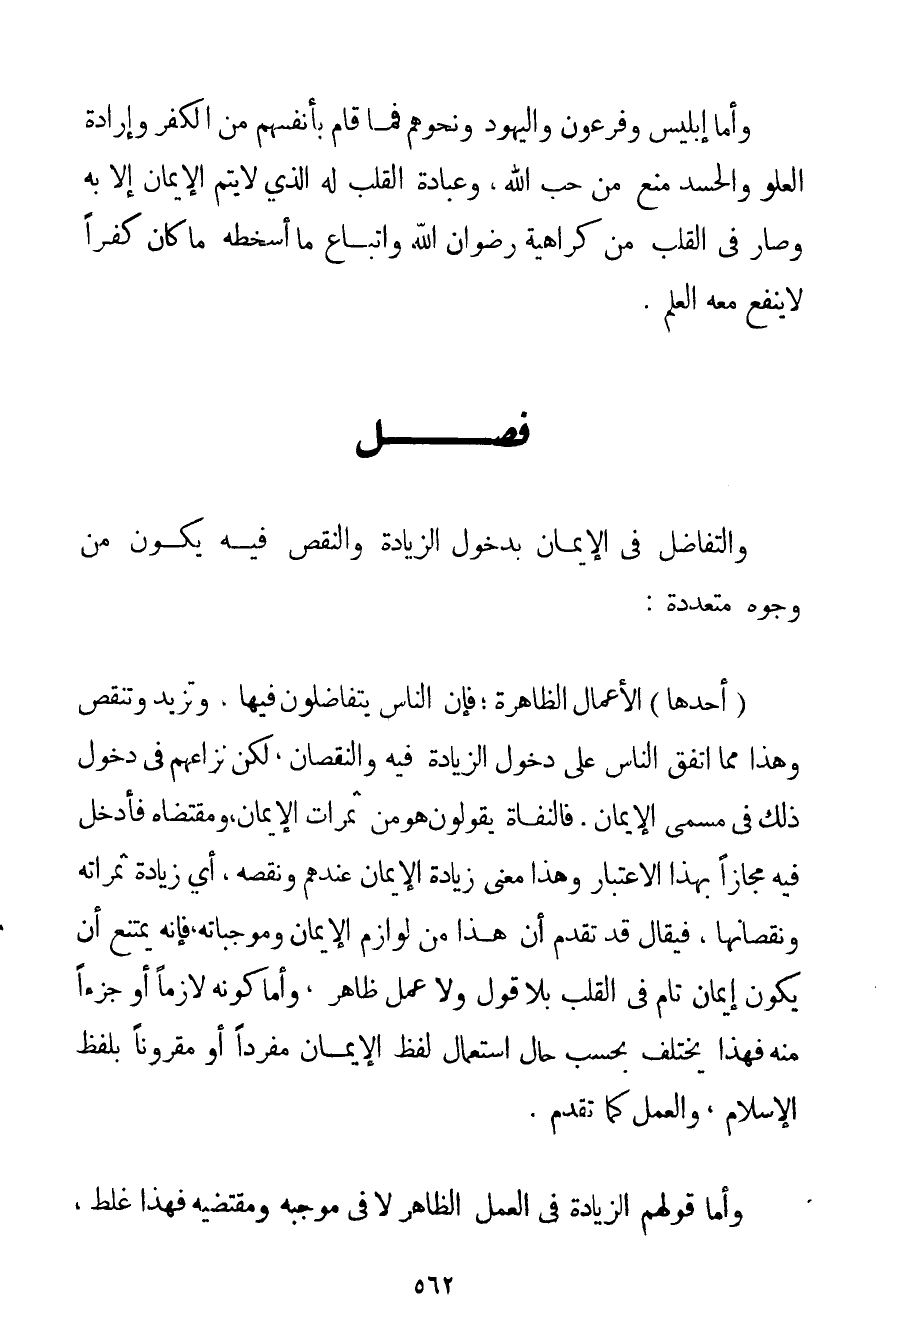 وأما إبليس وفرعون واليهود ونحوهم فما قام بأنفسهم من الكفر وإرادة
العلو والحسد منع من حب الله ، وعبادة القلب له الذي لايتم الإيمان إلا به
وصار فى القلب من كراهية رضوان الله واتباع ما أسخطه ماكان كفراً
لاينفع معه العلم .
فصل
والتفاضل فى الإيمان بدخول الزيادة والنقص فيه يكون من
وجوه متعددة :
( أحدها ) الأعمال الظاهرة ؛ فإن الناس يتفاضلون فيها ، وتزيد وتنقص
وهذا مما اتفق الناس على دخول الزيادة فيه والنقصان ، لكن نزاعهم فى دخول
ذلك فى مسمى الإيمان . فالنفاة يقولون هو من ثمرات الإيمان ، ومقتضاه فأدخل
فيه مجازاً بهذا الاعتبار وهذا معنى زيادة الإيمان عندهم ونقصه ، أي زيادة ثمراته
ونقصانها ، فيقال قد تقدم أن هذا من لوازم الإيمان وموجباته ، فإنه يمتنع أن
يكون إيمان تام فى القلب بلا قول ولا عمل ظاهر ، وأما كونه لازماً أو جزءاً
منه فهذا يختلف بحسب حال استعمال لفظ الإيمان مفرداً أو مقروناً بلفظ
الإسلام ، والعمل كما تقدم .
وأما قولهم الزيادة فى العمل الظاهر لا فى موجبه ومقتضيه فهذا غلط ،
٥٦٢